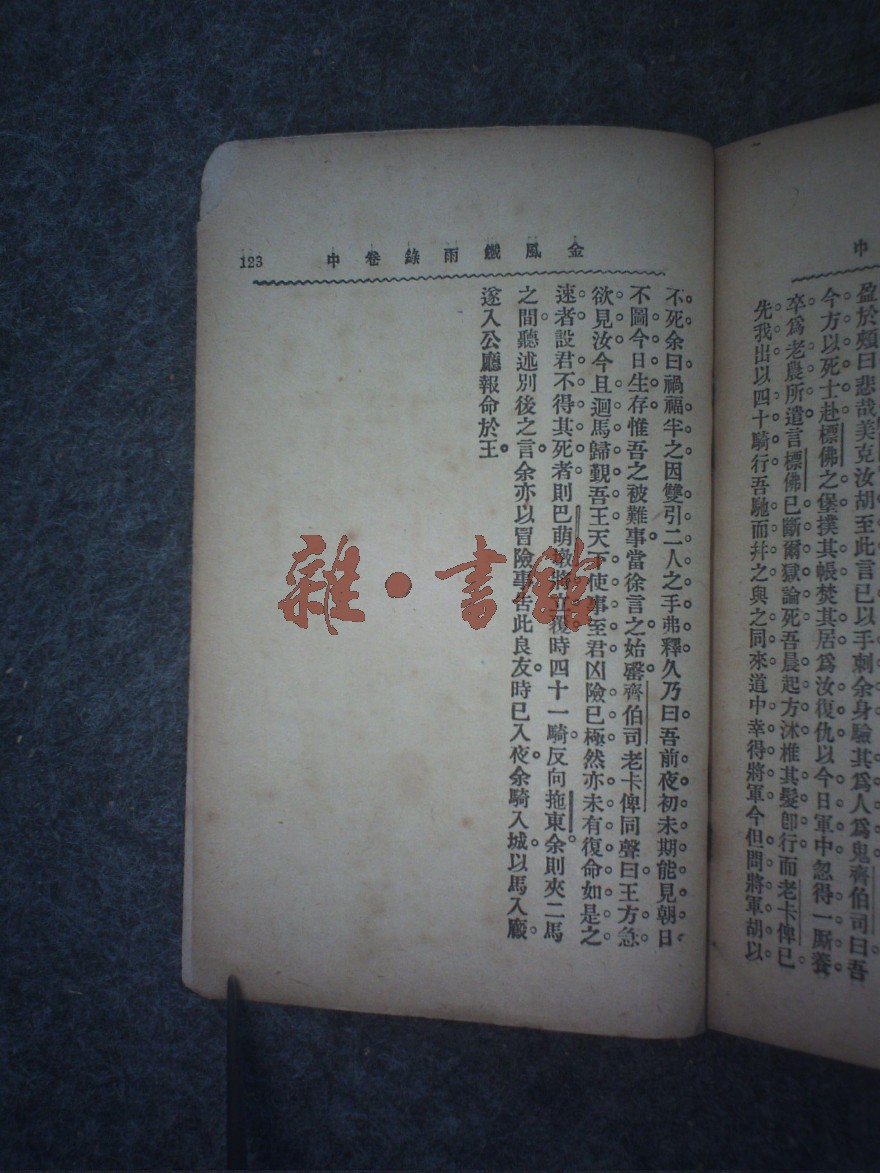 中
盈於頰曰悲哉美克汝胡至此言已以手刺余身驗其爲人爲鬼齊伯司曰吾
今方以死士赴標佛之堡撲其帳焚其居爲汝復仇以今日軍中忽得一厮養
卒爲老農所遣言標佛已斷爾獄論死吾晨起方沐椎其髮卽行而老卡俾已
先我出以四十騎行吾馳而幷之與之同來道中幸得將軍今但問將軍胡以
金風鐵雨錄卷中
123
不死余曰禍福半之因雙引二人之手弗釋久乃曰吾前夜初未期能見朝日
不圖今日生存惟吾之被難事當徐言之始罄齊伯司老卡俾同聲曰王方急
欲見汝今且迴馬歸覲吾王天下使事至君凶險已極然亦未有復命如是之
速者設君不得其死者則巴萌墩將立覆時四十一騎反向拖東余則夾二馬
之間聽述別後之言余亦以冒險事告此良友時已入夜余騎入城以馬入廄
遂入公廳報命於王
雜·書館